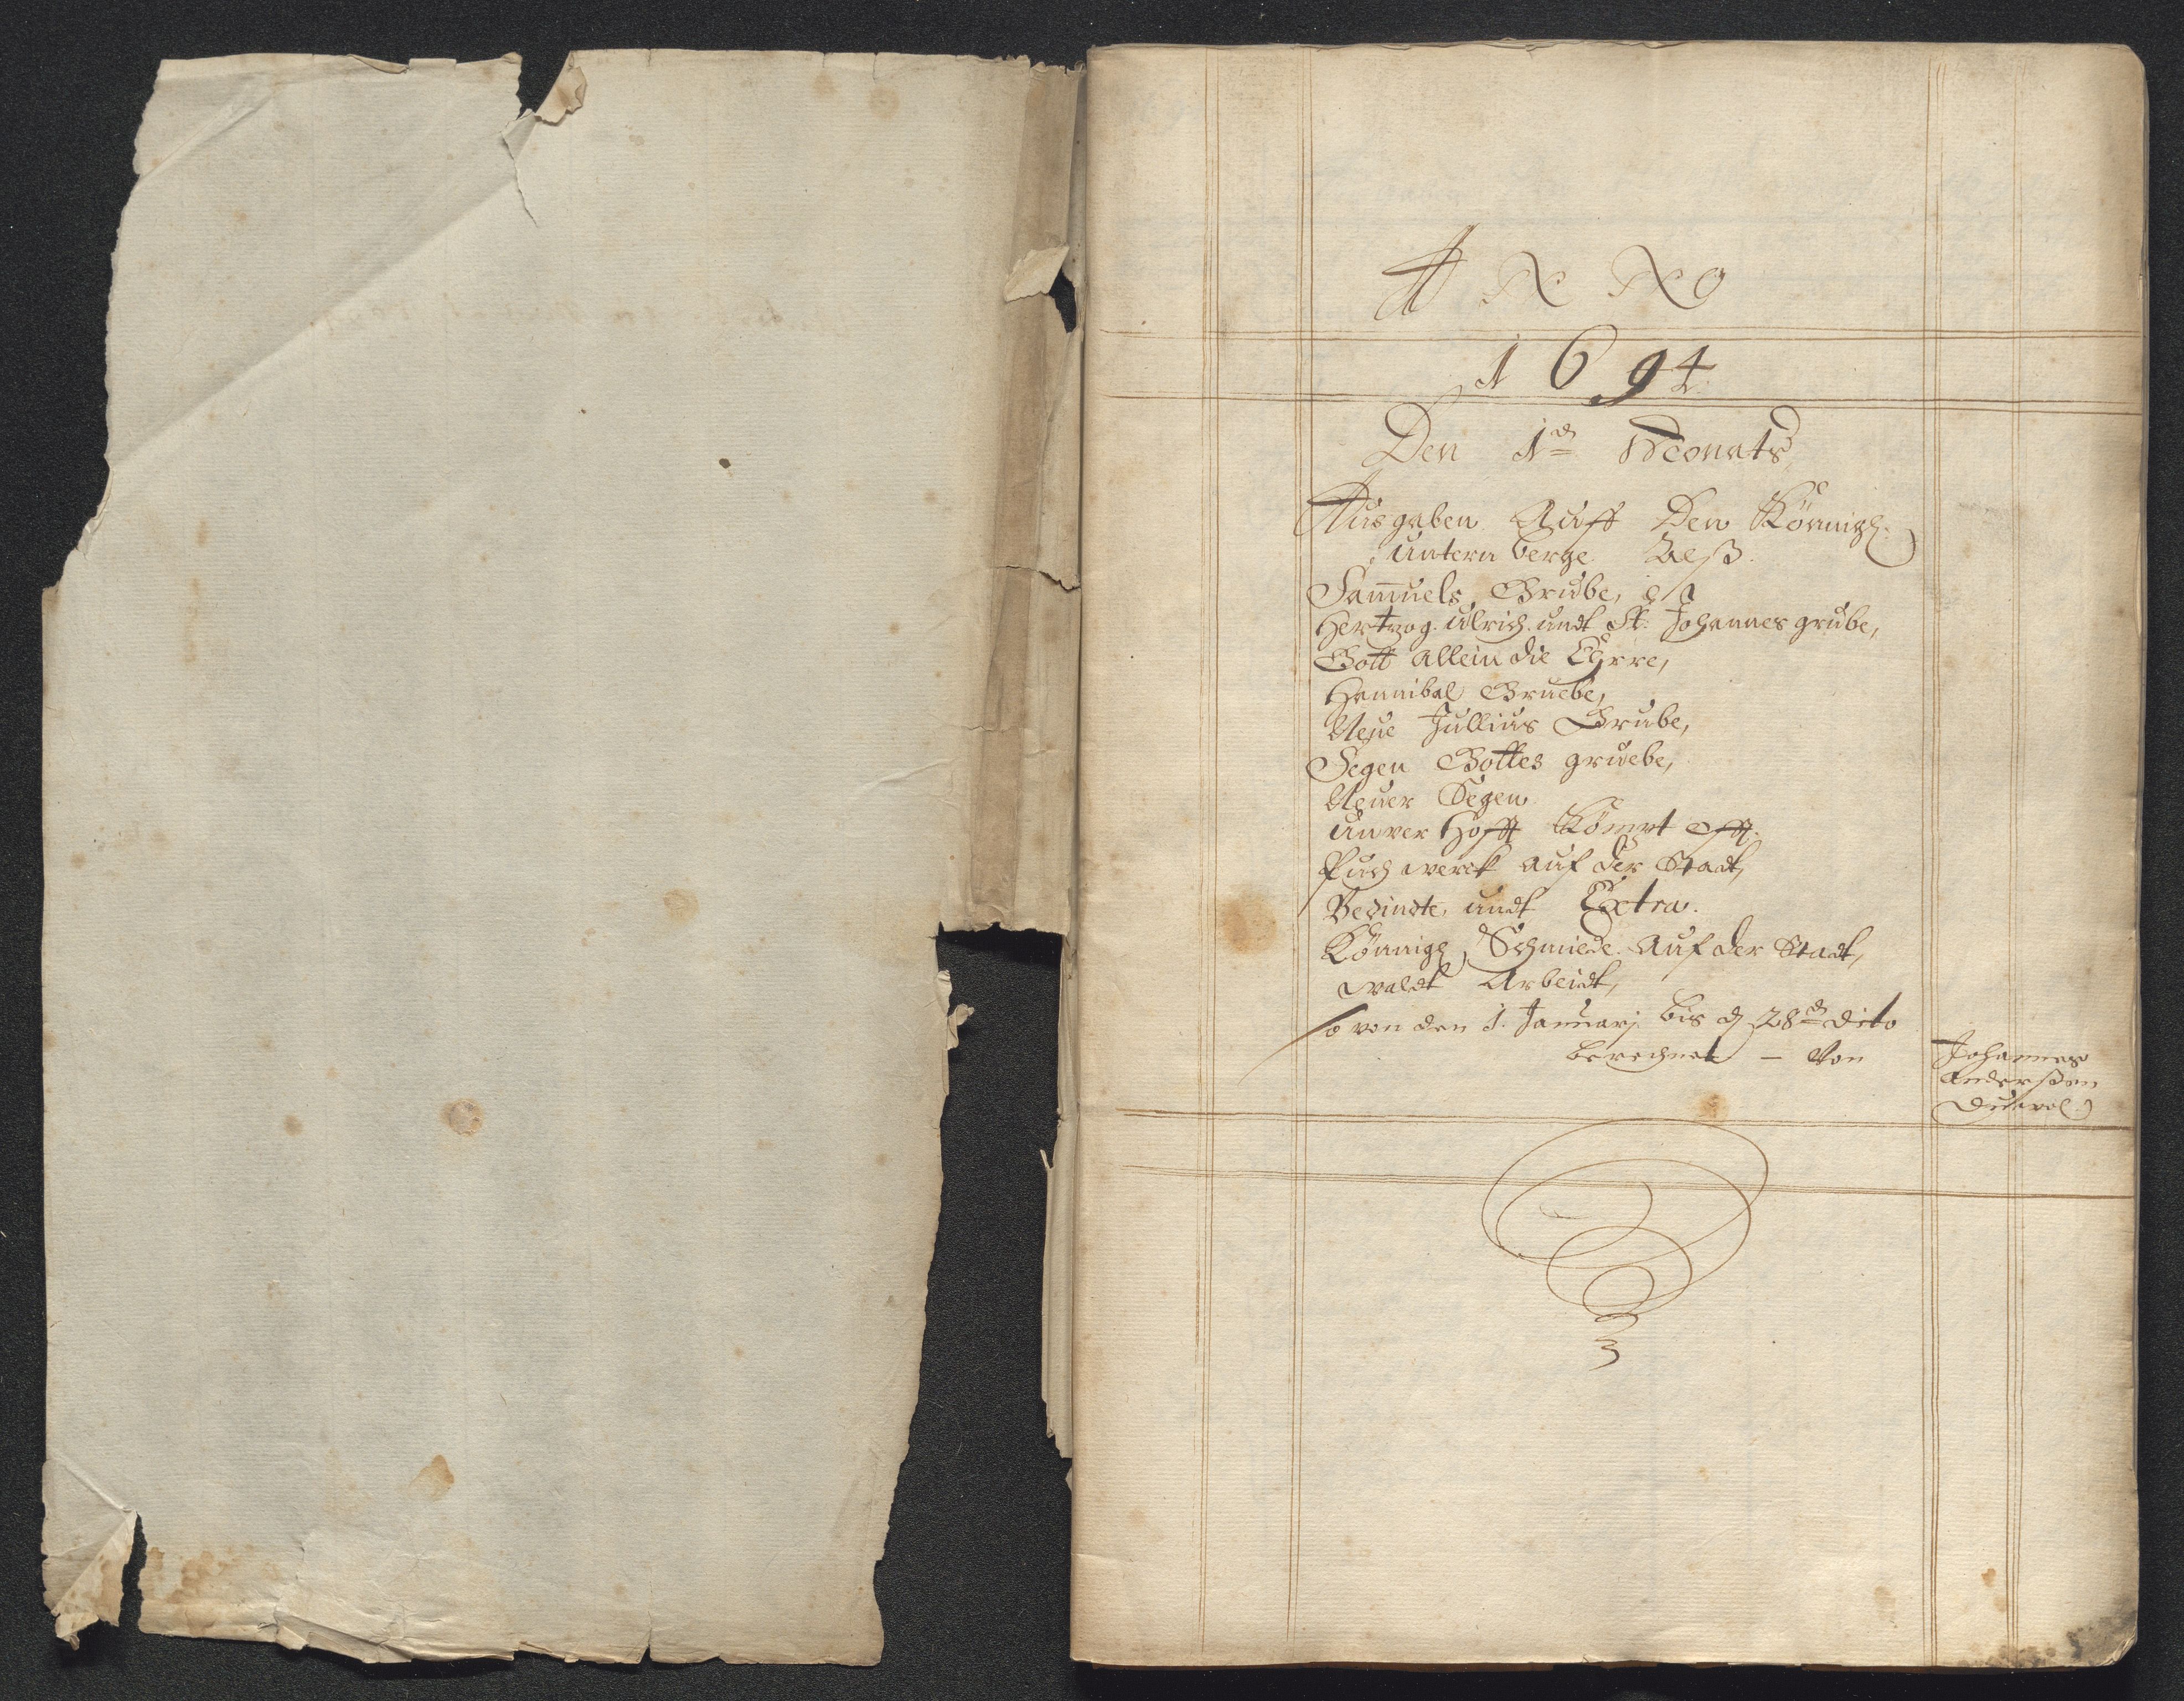 ANNO
1694
Den 1n Monats
Ausgaben Auff Den Könnigl:
Untern berge Alß
Samuels Grube,
Hertzog. Ulrich. undt St: Johannes grube,
Gott allein die Ehrre,
Hannibal Gruebe,
Neue Jullius Grube,
Segen Gottes gruebe,
Neuer Segen.
Unver Hofft Kömpt offt.
Puch werck auf der Stadt,
Bedinte, undt Extra.
Könnigl, Schmiede. Auf der Stadt,
waldt Arbeidt,
so von den 1. Januarj. bis d 28n dito
berechnet — Von
Johannes
Anderssen